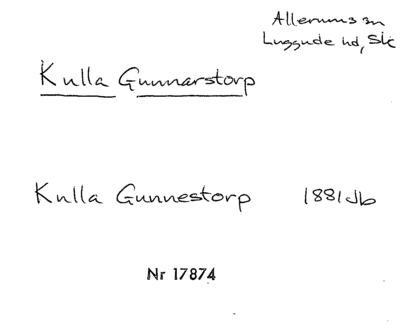 Allerums sn
Luggude hd, Sk
Kulla Gunnarstorp
Kulla Gunnestorp 1881 Jb
Nr 17874